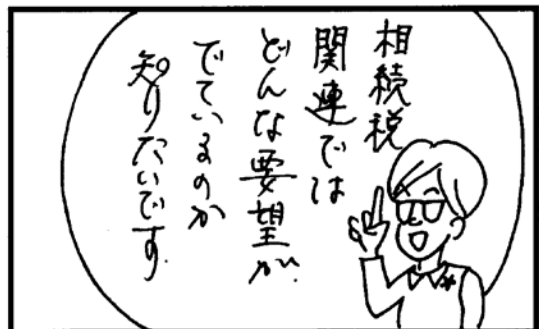 相続税
関連では
どんな要望が
でているのか
知りたいです